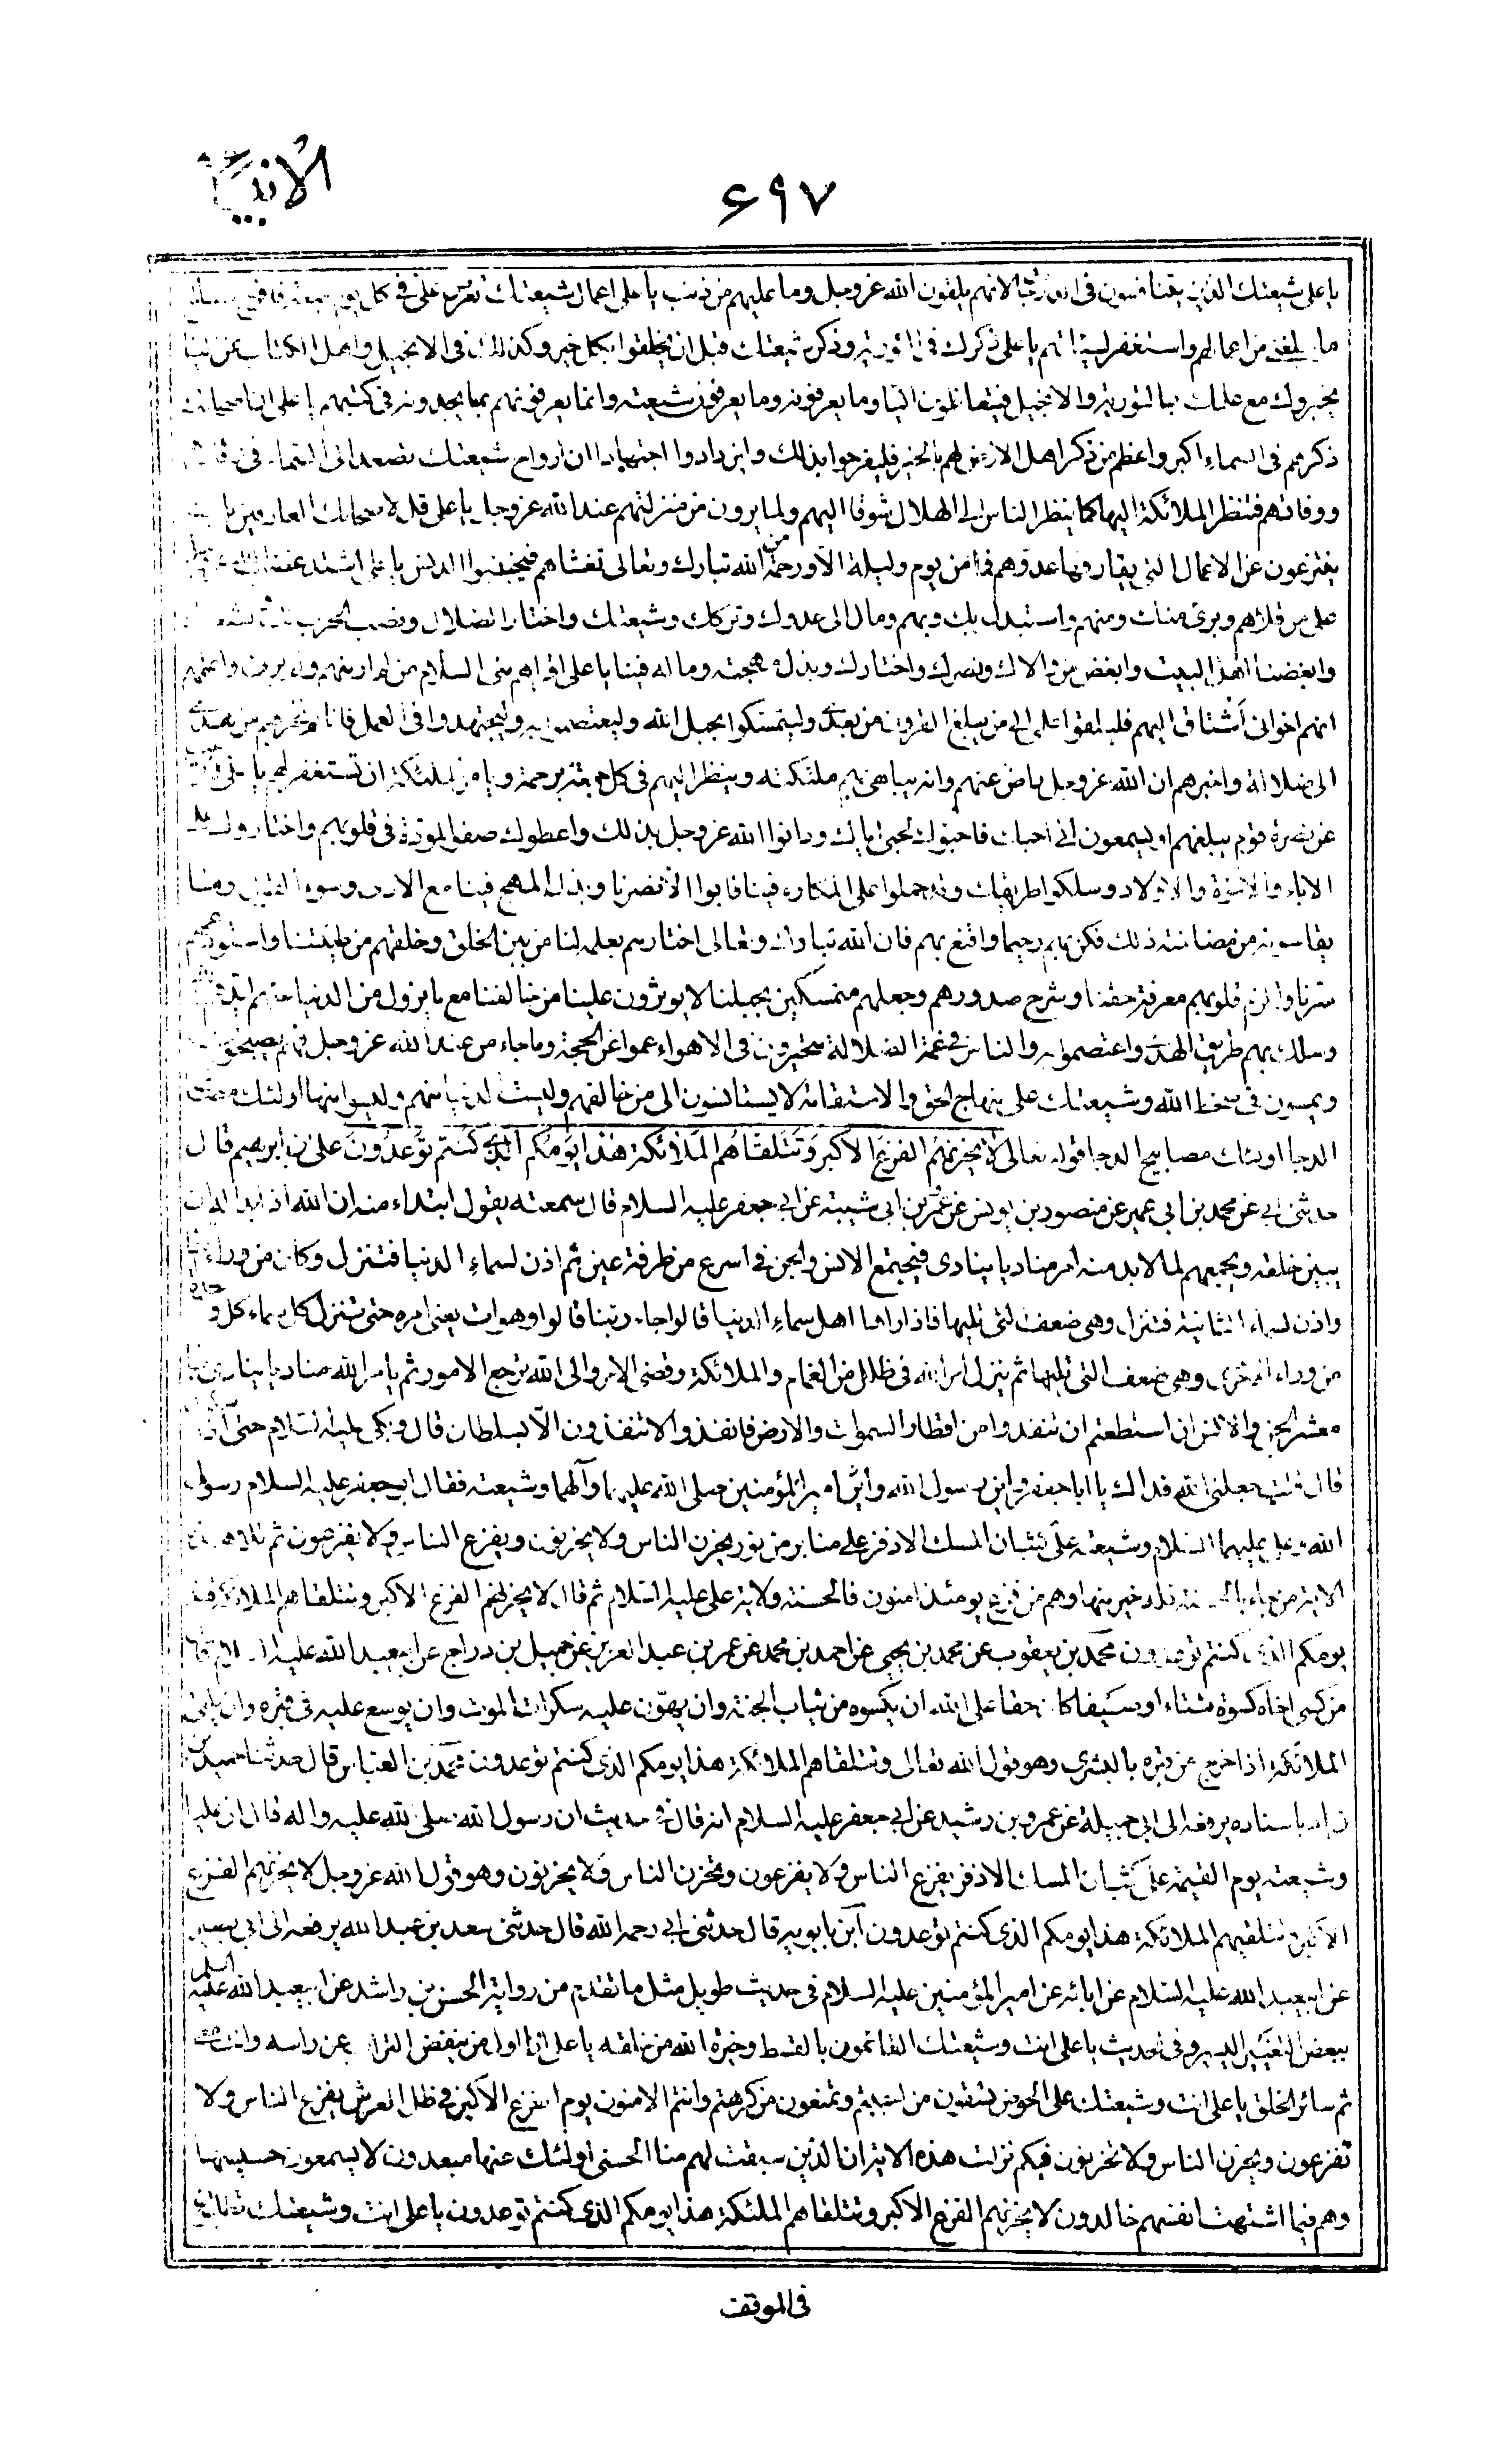 الانبیاء
۶۹۷
یا علی شیعتك الذین یتنافسون فی الدرجات لانهم یلقون الله عز وجل وما علیهم من ذنب یا علی اعمال شیعتك تعرض علی فی كل یوم جمعة فافرح بصالح
ما یبلغنی من اعمالهم واستغفر لسیئاتهم یا علی ذكرك فی التوریة وذكر شیعتك قبل ان یخلقوا بكل خیر وكذلك فی الانجیل واهل الكتاب عن الیا
یخبروك مع علمك بالتوریة والانجیل فیتعاظمون الیا وما یعرفونه وما یعرفون شیعته وانما یعرفونهم بما یجدونه فی كتبهم یا علی ان اصحابك
ذكرهم فی السماء اكبر واعظم من ذكر اهل الارض لهم بالخیر فلیفرحوا بذلك وایزدادوا اجتهادا ان ارواح شیعتك تصعد الی السماء فی
ووفاتهم فتنظر الملائكة الیها كما ینظر الناس الی الهلال شوقا الیهم ولما یرون من منزلتهم عند الله عز وجل یا علی قل لاصحابك العارفین بك
یتنزعون عن الاعمال التی یقارونها عدوهم فما من یوم ولیلة الا ورحمة من الله تبارك وتعالی تغشاهم فیجتنبوا الدنس یا علی اشتد غضب الله عز وجل
علی من قلاهم وبرئ منك ومنهم واستبدل بك وبهم ومال الی عدوك وتركك وشیعتك واختار الضلال ونصب الحرب لك
وابغضنا اهل البیت وابغض من والاك ونصرك واختارك وبذل مهجته وماله فینا یا علی اقراهم منی السلام من لم ارینهم ولم یرونی واعلمهم
انهم اخوانی اشتاق الیهم فلیلقوا علمی الی من یبلغ القرون من بعدی ولیتمسكوا بحبل الله ولیعتصموا به ولیجتهدوا فی العمل فانا لم نخرجهم من هدی
الی ضلالة واخبرهم ان الله عز وجل راض عنهم وانه یباهی بهم ملئكته وینظر الیهم فی كل جمعة برحمة ویامر الملئكة ان تستغفر لهم یا علی
عن نصرة قوم یبلغهم او یسمعون انی احبك فاحبوك لحبی ایاك ودانوا الله عز وجل بذلك واعطوك صفو المودة فی قلوبهم واختاروك علی
الاباء والاخوة والاولاد وسلكوا طریقك وقد حملوا علی المكاره فینا فابوا الا نصرنا وبذل المهج فینا مع الاذی وسوء القول وما
یقاسونه من مضاضة ذلك فكن بهم رحیما واقنع بهم فان الله تبارك وتعالی اختارهم بعلمه لنا من بین الخلق وخلقهم من طینتنا واستودعهم
سرنا والزم قلوبهم معرفة حقنا وشرح صدورهم وجعلهم متمسكین بحبلنا لا یوثرون علینا من خالفنا مع ما یزول من الدنیا عنهم
وسلك بهم طریق الهدی واعتصموا به والناس فی غمة الضلالة متحیرون فی الاهواء عموا عن الحجة وما جاء من عند الله عز وجل فهم یصبحون
ویمسون فی سخط الله وشیعتك علی منهاج الحق والاستقامة لا یستانسون الی من خالفهم ولیست الدنیا منهم ولیسوا منها اولئك مصابیح
الدجا اولئك مصابیح الدجا قوله تعالی لا یحزنهم الفزع الاكبر وتتلقاهم الملائكة هذا یومكم الذی كنتم توعدون علی بن ابرهیم قال
حدثنی ابی عن محمد بن ابی عمیر عن منصور بن یونس عن عمر بن ابی شیبة عن ابی جعفر علیه السلام قال سمعته یقول ابتداء منه ان الله اذا بدا له ان
یبین خلقه ویجمعهم لما لابد منه امر منادیا ینادی فیجتمع الانس والجن فی اسرع من طرفة عین ثم اذن لسماء الدنیا فتنزل وكان من وراء الناس
واذن لسماء الثانیة فتنزل وهی ضعف التی تلیها فاذا راها اهل سماء الدنیا قالوا جاء ربنا قالوا وهو ات یعنی امره حتی تنزل كل سماء كل واحدة
من وراء الاخری وهی ضعف التی تلیها ثم ینزل امر الله فی ظلل من الغمام والملائكة وقضی الامر والی الله ترجع الامور ثم یامر الله منادیا ینادی یا
معشر الجن والانس ان استطعتم ان تنفذوا من اقطار السموات والارض فانفذوا لا تنفذون الا بسلطان قال وبكی علیه السلام حتی اذا
قال قلت جعلنی الله فداك یا ابا جعفر واین رسول الله واین امیر المؤمنین صلی الله علیهما وآلهما وشیعته فقال ابو جعفر علیه السلام رسول
الله وعلی علیهما السلام وشیعته علی كثبان المسك الاذفر علی منابر من نور یحزن الناس ولا یحزنون ویفزع الناس ولا یفزعون ثم تلا هذه
الایة من جاء بالحسنة فله خیر منها وهم من فزع یومئذ امنون فالحسنة ولایة علی علیه السلام ثم قال لا یحزنهم الفزع الاكبر وتتلقاهم الملائكة هذا
یومكم الذی كنتم توعدون محمد بن یعقوب عن محمد بن یحیی عن احمد بن محمد عن عمر بن عبد العزیز عن جمیل بن دراج عن ابی عبد الله علیه السلام قال
من كسی اخاه كسوة شتاء او صیف كان حقا علی الله ان یكسوه من ثیاب الجنة وان یهون علیه سكرات الموت وان یوسع علیه فی قبره وان یلقی
الملائكة اذا خرج من قبره بالبشری وهو قول الله تعالی وتتلقاهم الملائكة هذا یومكم الذی كنتم توعدون محمد بن العباس قال حدثنا حمید بن
زیاد باسناده یرفعه الی ابی جمیلة عن عمرو بن رشید عن ابی جعفر علیه السلام انه قال فی حدیث ان رسول الله صلی الله علیه واله قال ان علیا
وشیعته یوم القیمة علی كثبان المسك الاذفر یفزع الناس ولا یفزعون ویحزن الناس ولا یحزنون وهو قول الله عز وجل لا یحزنهم الفزع
الاكبر وتتلقیهم الملائكة هذا یومكم الذی كنتم توعدون ابن بابویه قال حدثنی ابی رحمه الله قال حدثنی سعد بن عبد الله یرفعه الی ابی بصیر
عن ابی عبد الله علیه السلام عن ابائه عن امیر المؤمنین علیه السلام فی حدیث طویل مثل ما تقدم من روایة الحسن بن راشد عن ابی عبد الله علیه السلم
ببعض التغییر الیسیر وفی الحدیث یا علی انت وشیعتك القائمون بالقسط وخیرة الله من خلقه یا علی انا اول من ینفض التراب عن راسه وانت معی
ثم سائر الخلق یا علی انت وشیعتك علی الحوض تسقون من احببتم وتمنعون من كرهتم وانتم الامنون یوم الفزع الاكبر فی ظل العرش یفزع الناس ولا
تفزعون ویحزن الناس ولا تحزنون فیكم نزلت هذه الایة ان الذین سبقت لهم منا الحسنی اولئك عنها مبعدون لا یسمعون حسیسها
وهم فیما اشتهت انفسهم خالدون لا یحزنهم الفزع الاكبر وتتلقاهم الملئكة هذا یومكم الذی كنتم توعدون یا علی انت وشیعتك تطلبون
فی الموقف